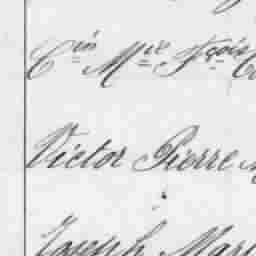 Cin Mie Fçois
Victor Pierre
Joseph Mari